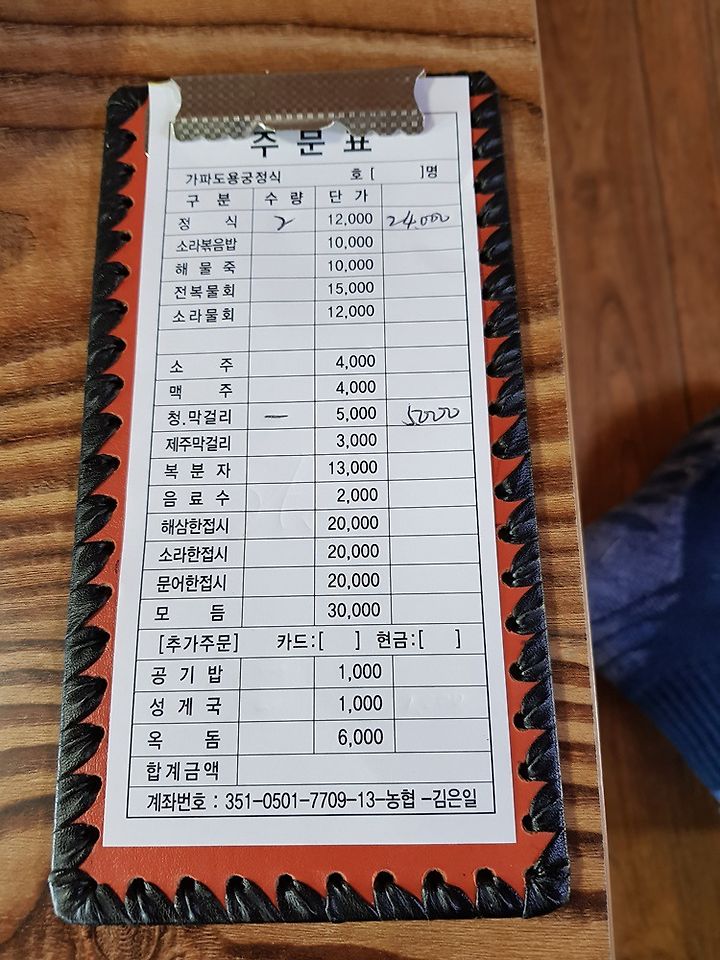 주 문 표
가파도용궁정식 호 [ ]명
구 분 수 량 단 가
정 식 2 12,000 24.000
소라볶음밥 10,000
해 물 죽 10,000
전복물회 15,000
소라물회 12,000
소 주 4,000
맥 주 4,000
청.막걸리 一 5,000 5000
제주막걸리 3,000
복 분 자 13,000
음 료 수 2,000
해삼한접시 20,000
소라한접시 20,000
문어한접시 20,000
모 듬 30,000
[추가주문] 카드:[ ] 현금:[ ]
공 기 밥 1,000
성 게 국 1,000
옥 돔 6,000
합계금액
계좌번호 : 351-0501-7709-13-농협 -김은일